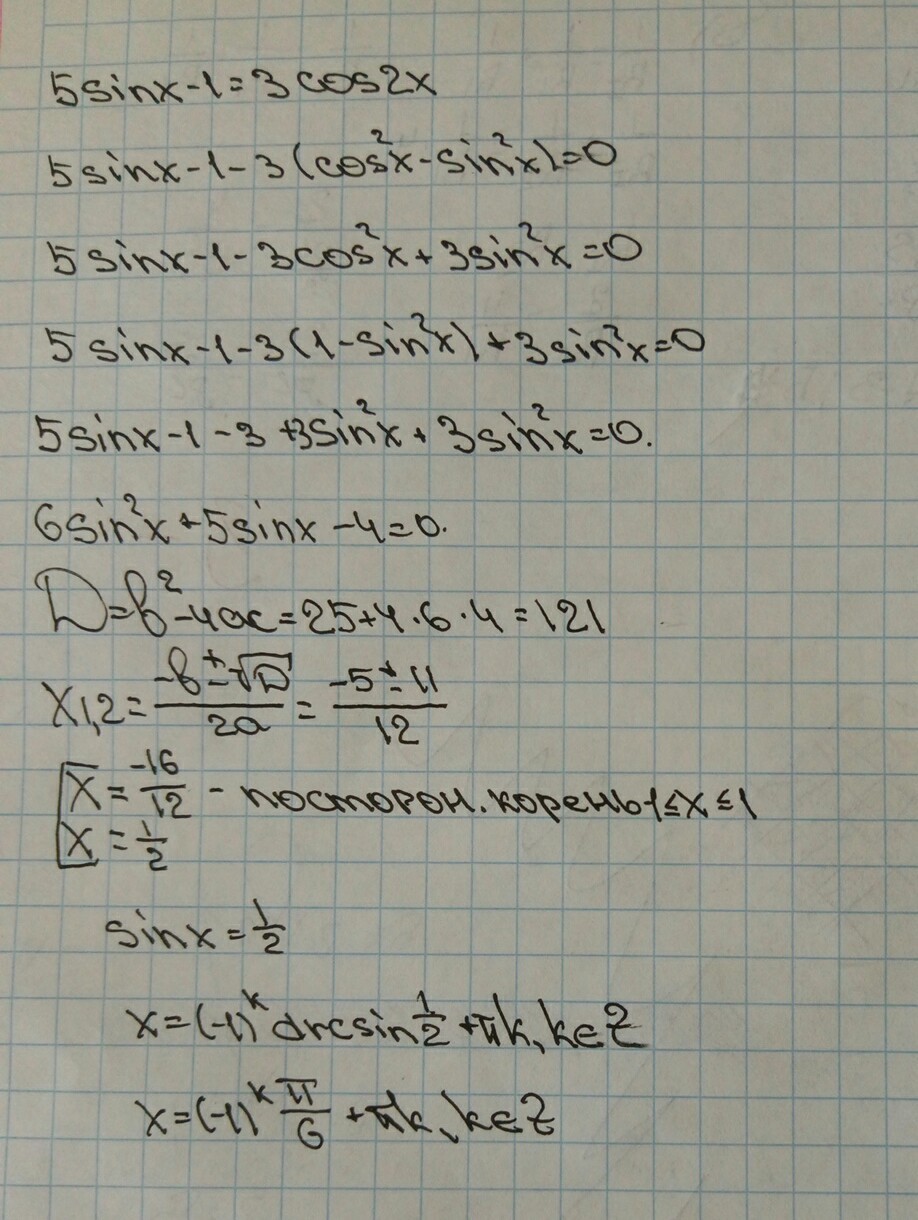 5sinx-1=3cos2x
5sinx-1-3(cos²x-sin²x)=0
5sinx-1-3cos²x+3sin²x=0
5sinx-1-3(1-sin²x)+3sin²x=0
5sinx-1-3+3sin²x+3sin²x=0.
6sin²x+5sinx-4=0.
D=b²-4ac=25+4·6·4=121
x1,2=(-b±√D)/2a=(-5±11)/12
[x=-16/12 - посторон. корень -1≤x≤1
[x=1/2
sinx=1/2
x=(-1)ᵏarcsin1/2+πk, k∈Z
x=(-1)ᵏπ/6+πk, k∈Z